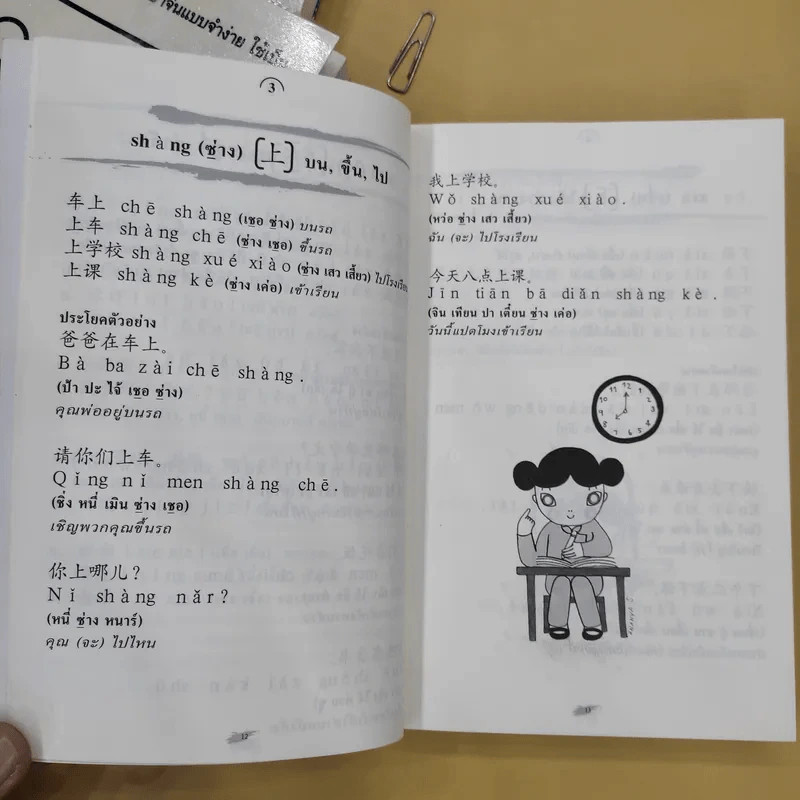 าจีนแบบจำง่าย ใช้เป็น
3
shàng (ซ่าง) [上] บน, ขึ้น, ไป
车上 chē shàng (เชอ ซ่าง) บนรถ
上车 shàng chē (ซ่าง เชอ) ขึ้นรถ
上学校 shàng xué xiào (ซ่าง เสว เสี้ยว) ไปโรงเรียน
上课 shàng kè (ซ่าง เค่อ) เข้าเรียน
ประโยคตัวอย่าง
爸爸在车上。
Bà ba zài chē shàng.
(ป้า ปะ ไจ้ เชอ ซ่าง)
คุณพ่ออยู่บนรถ
请你们上车。
Qǐng nǐ men shàng chē.
(ชิ่ง หนี่ เมิน ซ่าง เชอ)
เชิญพวกคุณขึ้นรถ
你上哪儿？
Nǐ shàng nǎr?
(หนี่ ซ่าง หนาร์)
คุณ (จะ) ไปไหน
12
我上学校。
Wǒ shàng xué xiào.
(หว่อ ซ่าง เสว เสี้ยว)
ฉัน (จะ) ไปโรงเรียน
今天八点上课。
Jīn tiān bā diǎn shàng kè.
(จิน เทียน ปา เตี่ยน ซ่าง เค่อ)
วันนี้แปดโมงเข้าเรียน
12 1 2 3 4 5 6 7 8 9 10 11
13